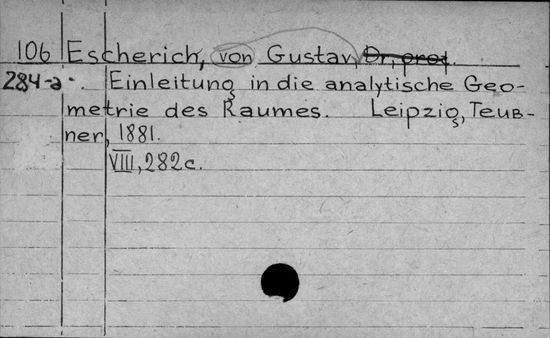 106 Escherich, von Gustav, Dr, prof.
284-a. Einleitung in die analytische Geo-
metrie des Raumes. Leipzig, Teub-
ner, 1881.
VIII, 282c.